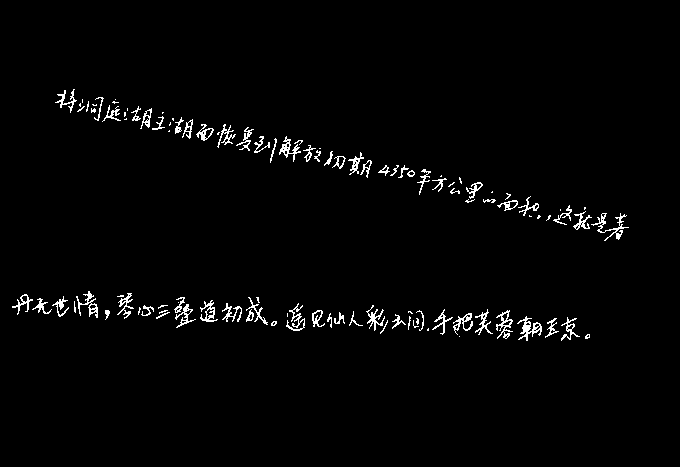 将洞庭湖主湖面恢复到解放初期4350平方公里的面积,这就是着
丹无世情,琴心三叠道初成。遥见仙人彩云间,手把芙蓉朝玉京。